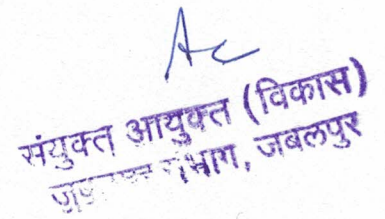 संयुक्त आयुक्त (विकास)
संभाग, जबलपुर